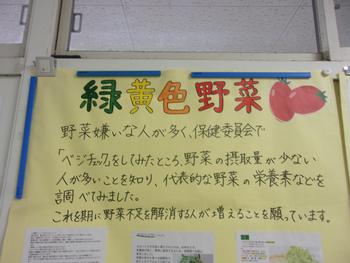 緑黄色野菜
野菜嫌いな人が多く、保健委員会で
「ベジチェック」をしてみたところ、野菜の摂取量が少ない
人が多いことを知り、代表的な野菜の栄養素などを
調べてみました。
これを期に野菜不足を解消する人が増えることを願っています。